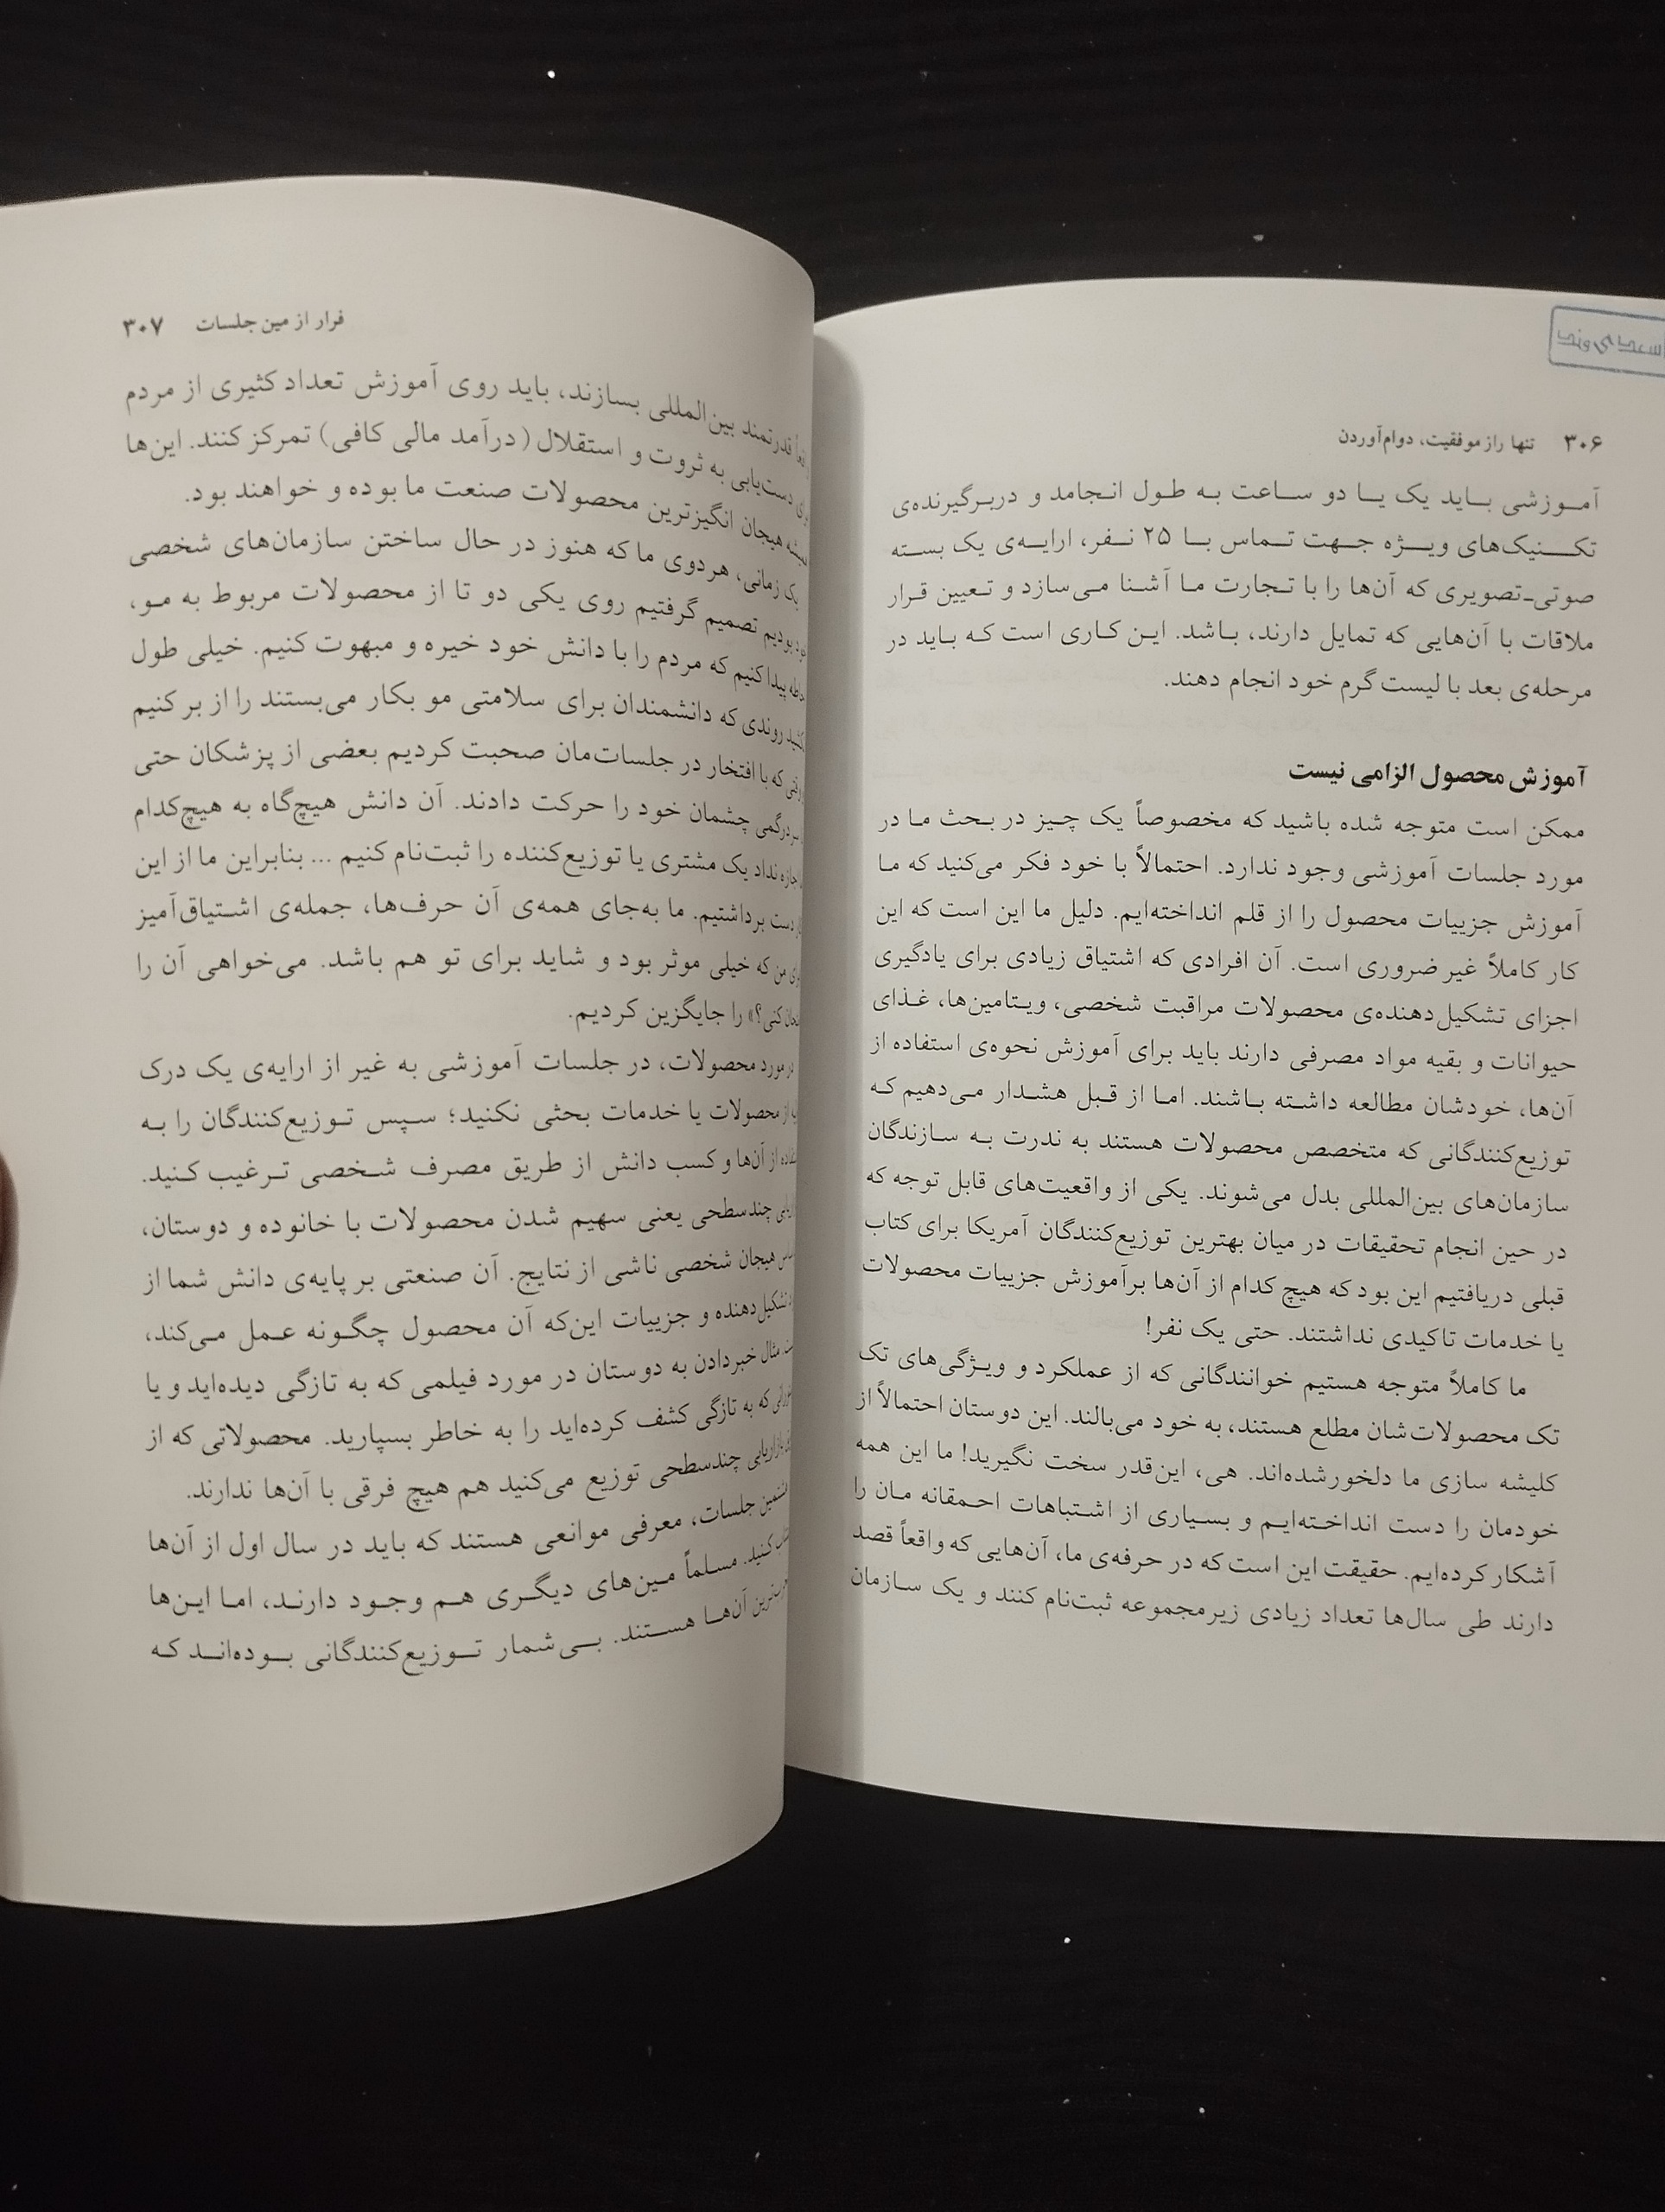 ۳۰۶ تنها راز موفقیت، دوام‌آوردن
آموزشی باید یک یا دو ساعت به طول انجامد و دربرگیرنده‌ی
تکنیک‌های ویژه جهت تماس با ۲۵ نفر، ارایه‌ی یک بسته
صوتی-تصویری که آن‌ها را با تجارت ما آشنا می‌سازد و تعیین قرار
ملاقات با آن‌هایی که تمایل دارند، باشد. این کاری است که باید در
مرحله‌ی بعد با لیست گرم خود انجام دهند.
آموزش محصول الزامی نیست
ممکن است متوجه شده باشید که مخصوصاً یک چیز در بحث ما در
مورد جلسات آموزشی وجود ندارد. احتمالاً با خود فکر می‌کنید که ما
آموزش جزییات محصول را از قلم انداخته‌ایم. دلیل ما این است که این
کار کاملاً غیر ضروری است. آن افرادی که اشتیاق زیادی برای یادگیری
اجزای تشکیل‌دهنده‌ی محصولات مراقبت شخصی، ویتامین‌ها، غذای
حیوانات و بقیه مواد مصرفی دارند باید برای آموزش نحوه‌ی استفاده از
آن‌ها، خودشان مطالعه داشته باشند. اما از قبل هشدار می‌دهیم که
توزیع‌کنندگانی که متخصص محصولات هستند به ندرت به سازندگان
سازمان‌های بین‌المللی بدل می‌شوند. یکی از واقعیت‌های قابل توجه که
در حین انجام تحقیقات در میان بهترین توزیع‌کنندگان آمریکا برای کتاب
قبلی دریافتیم این بود که هیچ کدام از آن‌ها برآموزش جزییات محصولات
یا خدمات تاکیدی نداشتند. حتی یک نفر!
ما کاملاً متوجه هستیم خوانندگانی که از عملکرد و ویژگی‌های تک
تک محصولات‌شان مطلع هستند، به خود می‌بالند. این دوستان احتمالاً از
کلیشه سازی ما دلخورشده‌اند. هی، این‌قدر سخت نگیرید! ما این همه
خودمان را دست انداخته‌ایم و بسیاری از اشتباهات احمقانه مان را
آشکار کرده‌ایم. حقیقت این است که در حرفه‌ی ما، آن‌هایی که واقعاً قصد
دارند طی سال‌ها تعداد زیادی زیرمجموعه ثبت‌نام کنند و یک سازمان
فرار از مین جلسات ۳۰۷
قدرتمند بین‌المللی بسازند، باید روی آموزش تعداد کثیری از مردم
دست‌یابی به ثروت و استقلال (درآمد مالی کافی) تمرکز کنند. این‌ها
هیجان انگیزترین محصولات صنعت ما بوده و خواهند بود.
یک زمانی، هردوی ما که هنوز در حال ساختن سازمان‌های شخصی
بودیم تصمیم گرفتیم روی یکی دو تا از محصولات مربوط به مو،
پیدا کنیم که مردم را با دانش خود خیره و مبهوت کنیم. خیلی طول
روندی که دانشمندان برای سلامتی مو بکار می‌بستند را از بر کنیم
که با افتخار در جلسات‌مان صحبت کردیم بعضی از پزشکان حتی
چشمان خود را حرکت دادند. آن دانش هیچ‌گاه به هیچ‌کدام
نداد یک مشتری یا توزیع‌کننده را ثبت‌نام کنیم ... بنابراین ما از این
دست برداشتیم. ما به‌جای همه‌ی آن حرف‌ها، جمله‌ی اشتیاق‌آمیز
من که خیلی موثر بود و شاید برای تو هم باشد. می‌خواهی آن را
کنی؟» را جایگزین کردیم.
در مورد محصولات، در جلسات آموزشی به غیر از ارایه‌ی یک درک
از محصولات یا خدمات بحثی نکنید؛ سپس توزیع‌کنندگان را به
از آن‌ها و کسب دانش از طریق مصرف شخصی ترغیب کنید.
چندسطحی یعنی سهیم شدن محصولات با خانوده و دوستان،
هیجان شخصی ناشی از نتایج. آن صنعتی بر پایه‌ی دانش شما از
تشکیل‌دهنده و جزییات این‌که آن محصول چگونه عمل می‌کند،
مثال خبردادن به دوستان در مورد فیلمی که به تازگی دیده‌اید و یا
که به تازگی کشف کرده‌اید را به خاطر بسپارید. محصولاتی که از
بازاریابی چندسطحی توزیع می‌کنید هم هیچ فرقی با آن‌ها ندارند.
جلسات، معرفی موانعی هستند که باید در سال اول از آن‌ها
کنید. مسلماً مین‌های دیگری هم وجود دارند، اما این‌ها
آن‌ها هستند. بی‌شمار توزیع‌کنندگانی بوده‌اند که